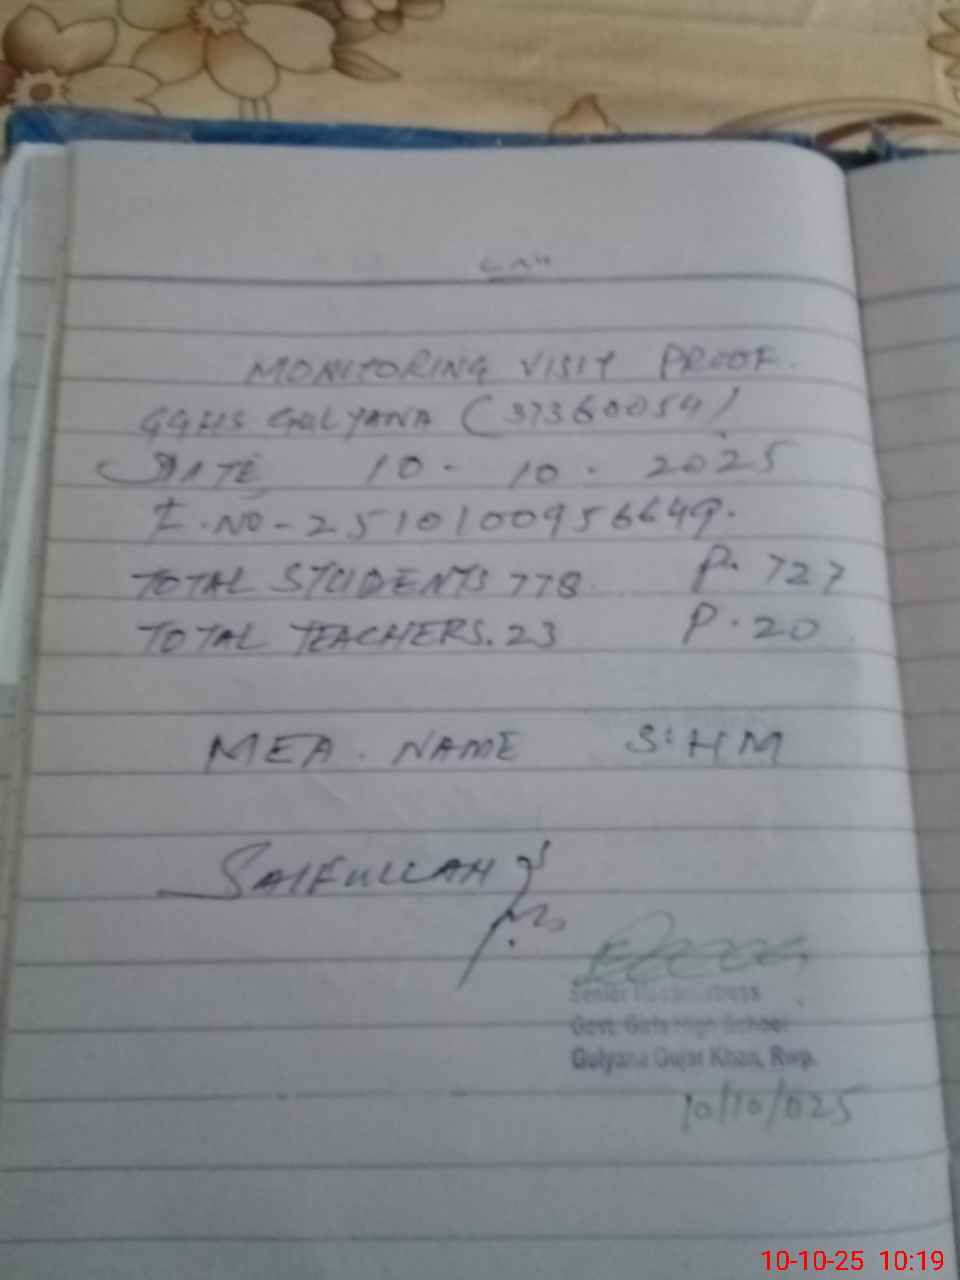 MONITORING VISIT PROOF.
GGHS GULYANA (37360054)
DATE 10 - 10 - 2025
E.NO - 2510100956649.
TOTAL STUDENTS 778 P. 727
TOTAL TEACHERS. 23 P. 20
MEA. NAME S:HM
SAIFULLAH
Senior Headmistress
Govt. Girls High School
Gulyana Gujar Khan, Rwp.
10/10/025
10-10-25 10:19